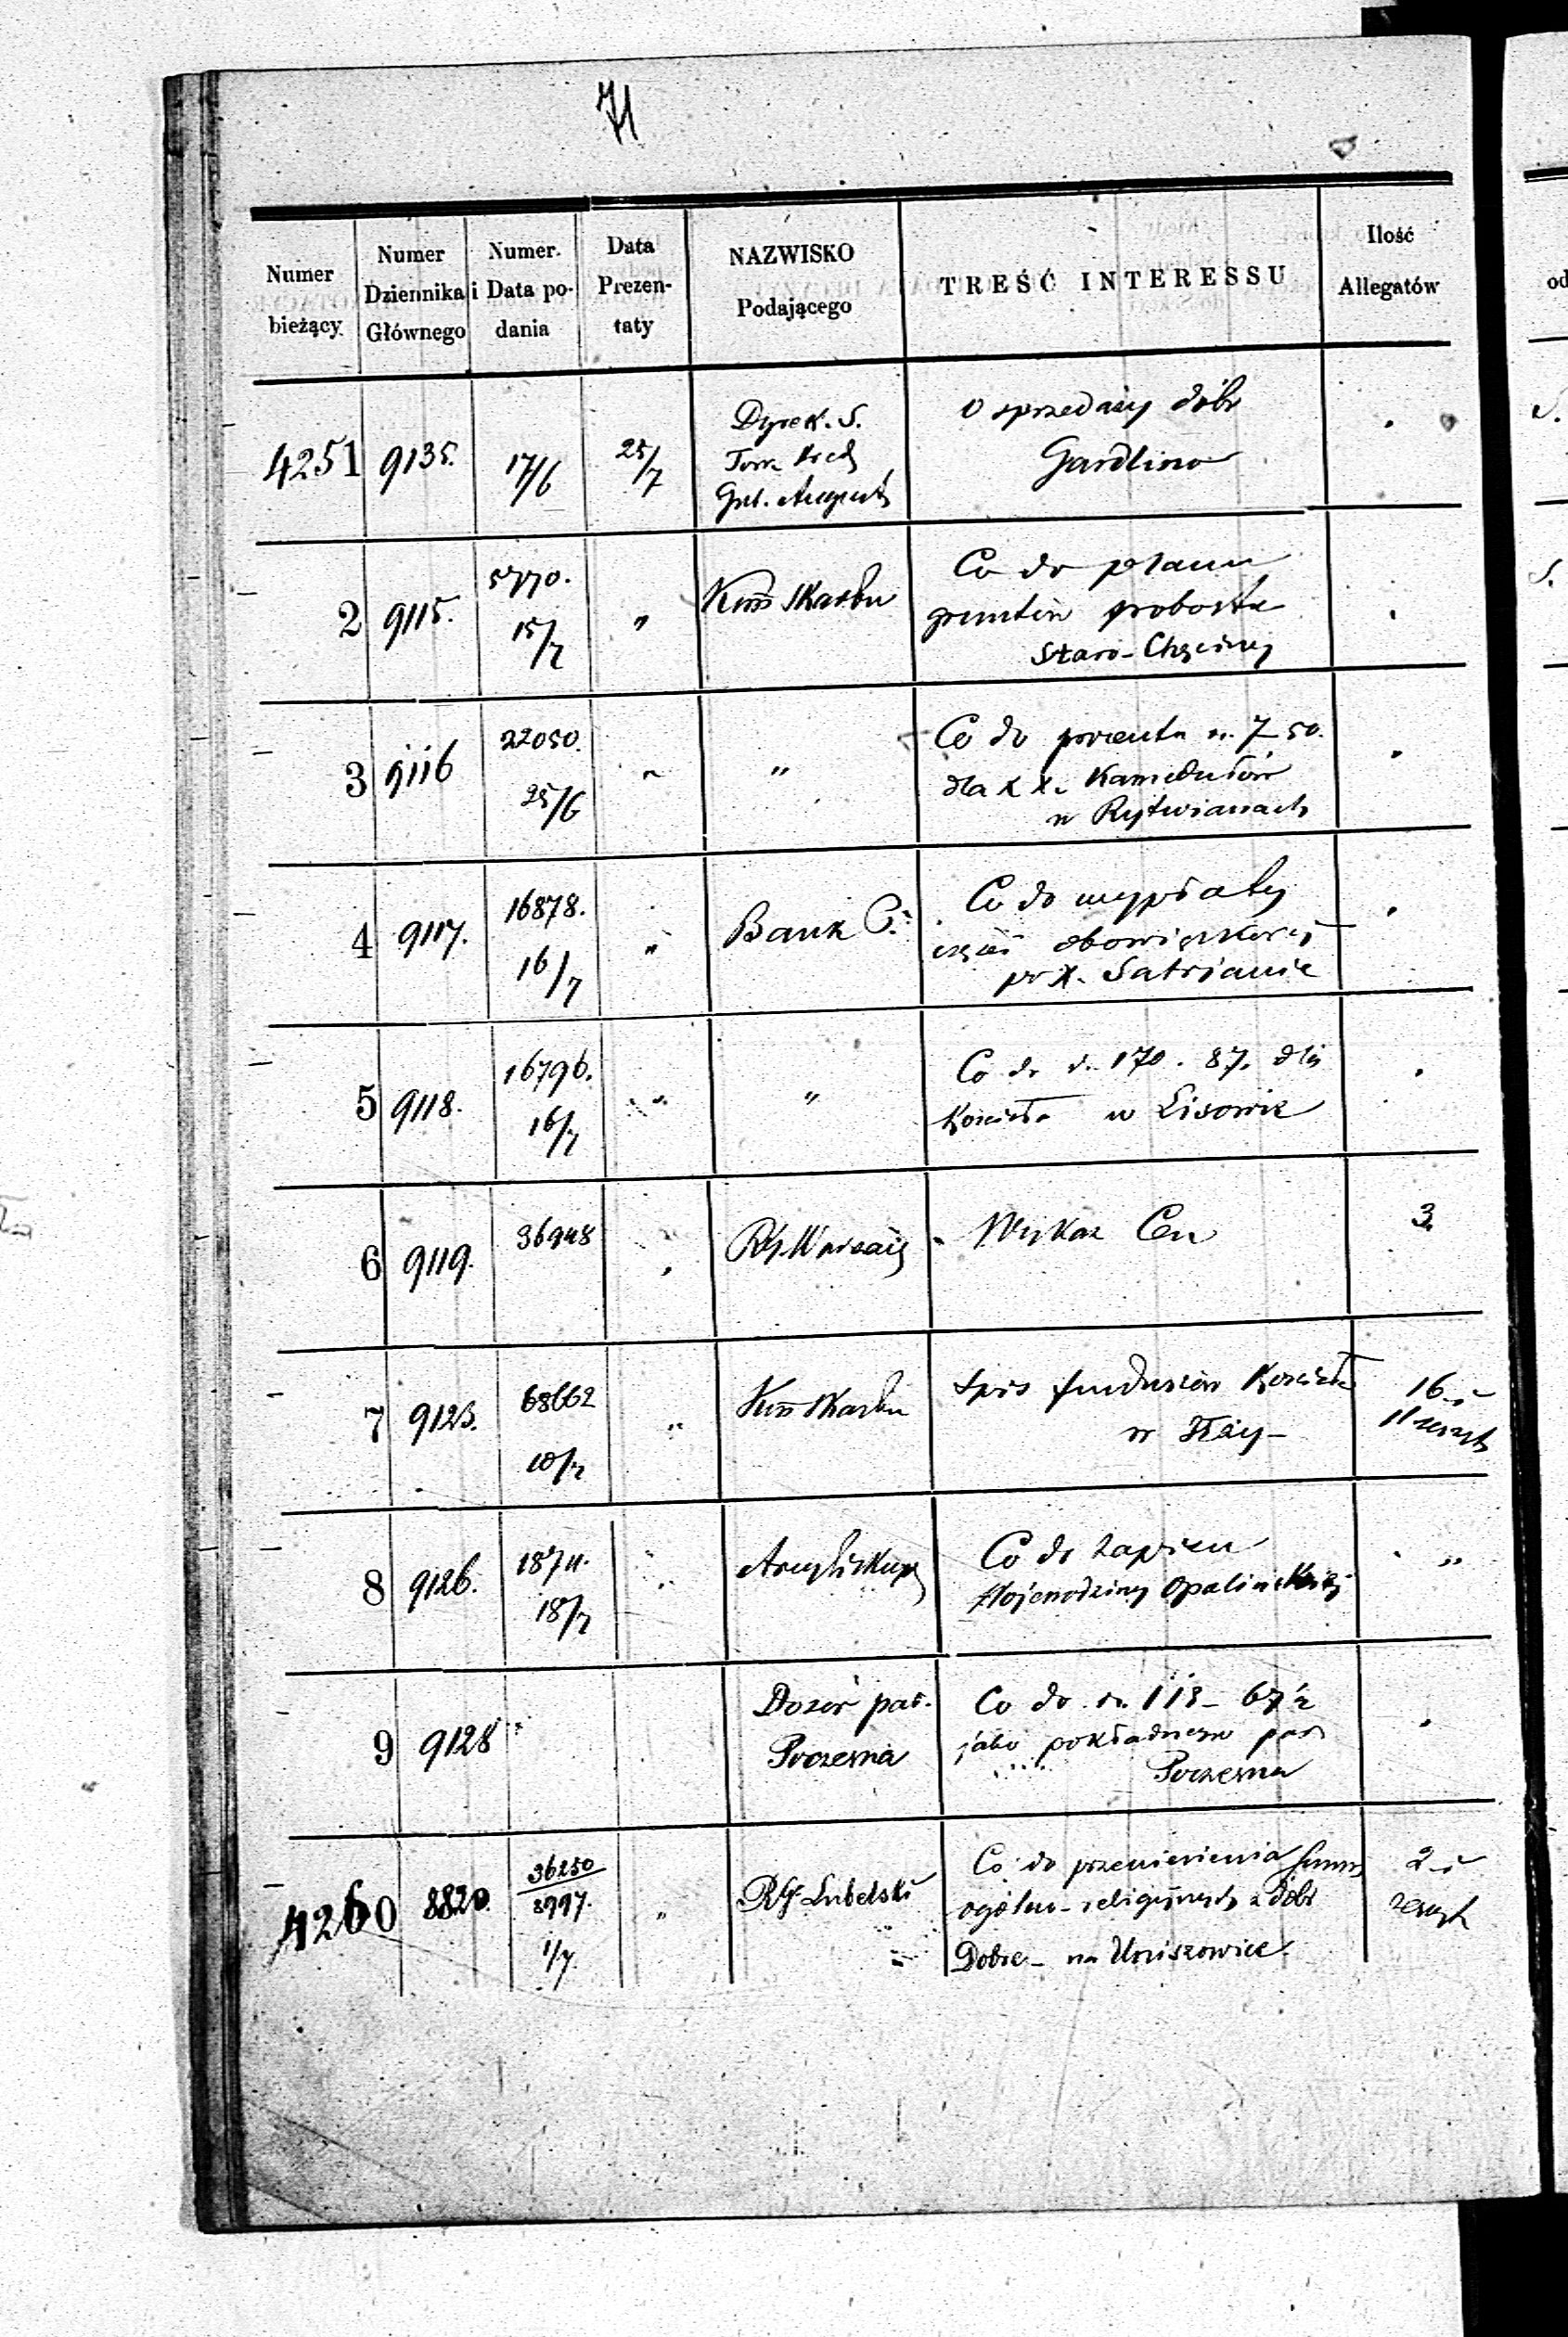 71
Numer bieżący
Numer Dziennika Głównego
Numer. i Data podania
Data Prezentaty
NAZWISKO Podającego
TREŚĆ INTERESSU
Ilość Allegatów
4251 9135. 17/6 25/7
Dyrek. S.
Tow. Kred
Gub. August
O sprzedaży dóbr
Gardlino
2 9115. 5770. 15/7 "
Kom Skarbu
Co do planu
gruntów probostw
Staro-Chęciny
3 9116 22050. 25/6 " "
Co do procentu rs. 7 50.
dla X X. Kamedułów
w Rytwianach
4 9117. 16878. 16/7 "
Bank P.
Co do wypłaty
części obowiązkowej
po X. Satrianie
5 9118. 16796. 16/7 " "
Co do rs. 170. 87. dla
Kościoła w Lisowie
6 9119. 36948 "
RG. Warszaw
Wykaz Cen
3
7 9123. 68662 10/7 "
Kom Skarbu
Spis funduszów Kościoła
w Iłży
16 i
11 zeszyt
8 9126. 1874. 18/7 "
Arcybiskup
Co do zapisu
Wojewodziny Opalińskiej
"
9 9128
Dozór par.
Poczesna
Co do rs. 113 - 67½
jako pokładnego par
Poczesna
4260 8820. 36250
3997.
1/7. "
RG. Lubelski
Co do przeniesienia summ
ogólno-religijnych z dóbr
Dobre - na Uniszowice
2 i
zeszyt